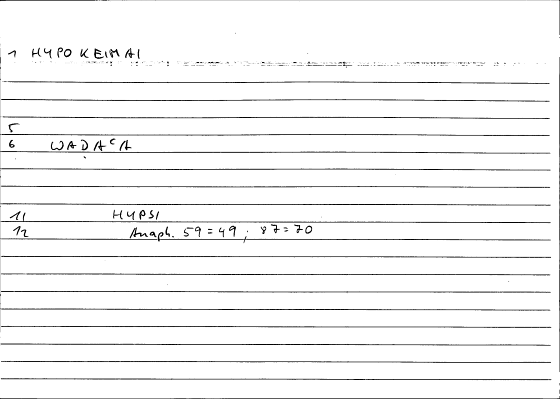 1 HYPOKEIMAI
5
6 WADAᶜA
11 HYPSI
12 Anaph. 59=49; 87=70